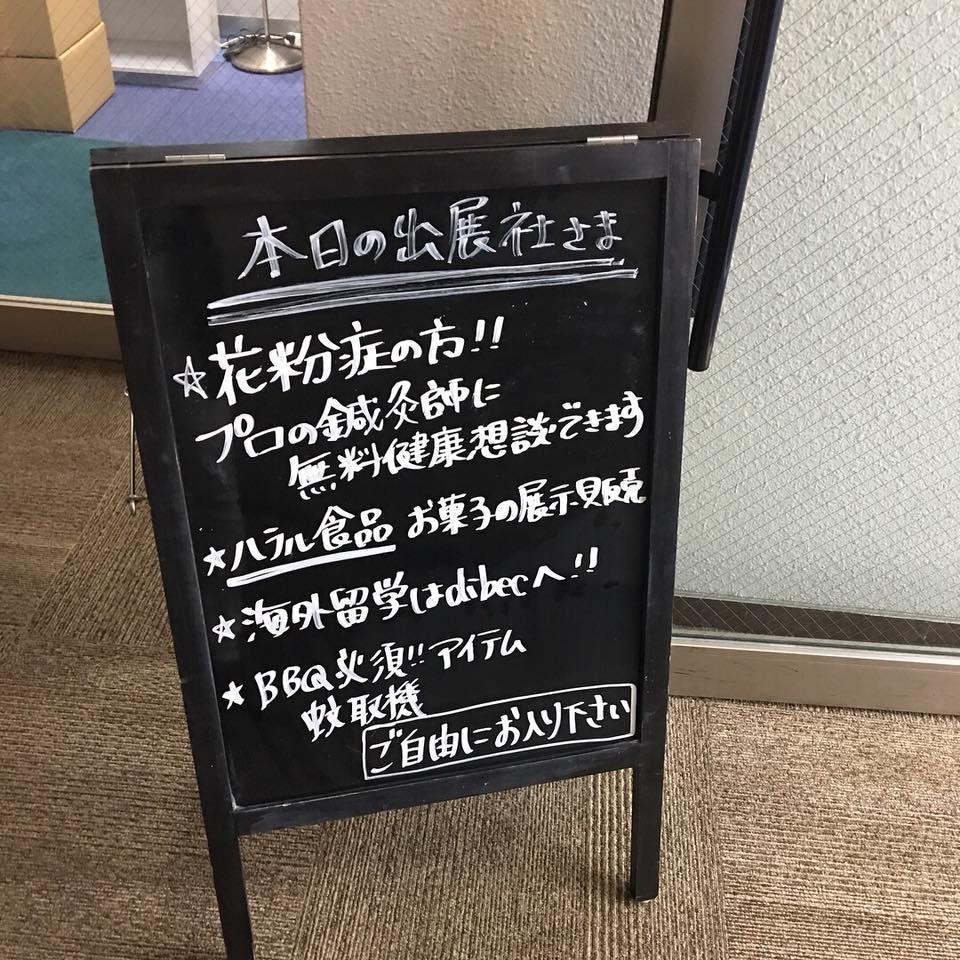 本日の出展社さま
☆花粉症の方!!
プロの鍼灸師に
無料健康想談できます
★ハラル食品 お菓子の展示販売
☆海外留学はdibecへ!!
★BBQ必須!!アイテム
蚊取機
ご自由にお入り下さい